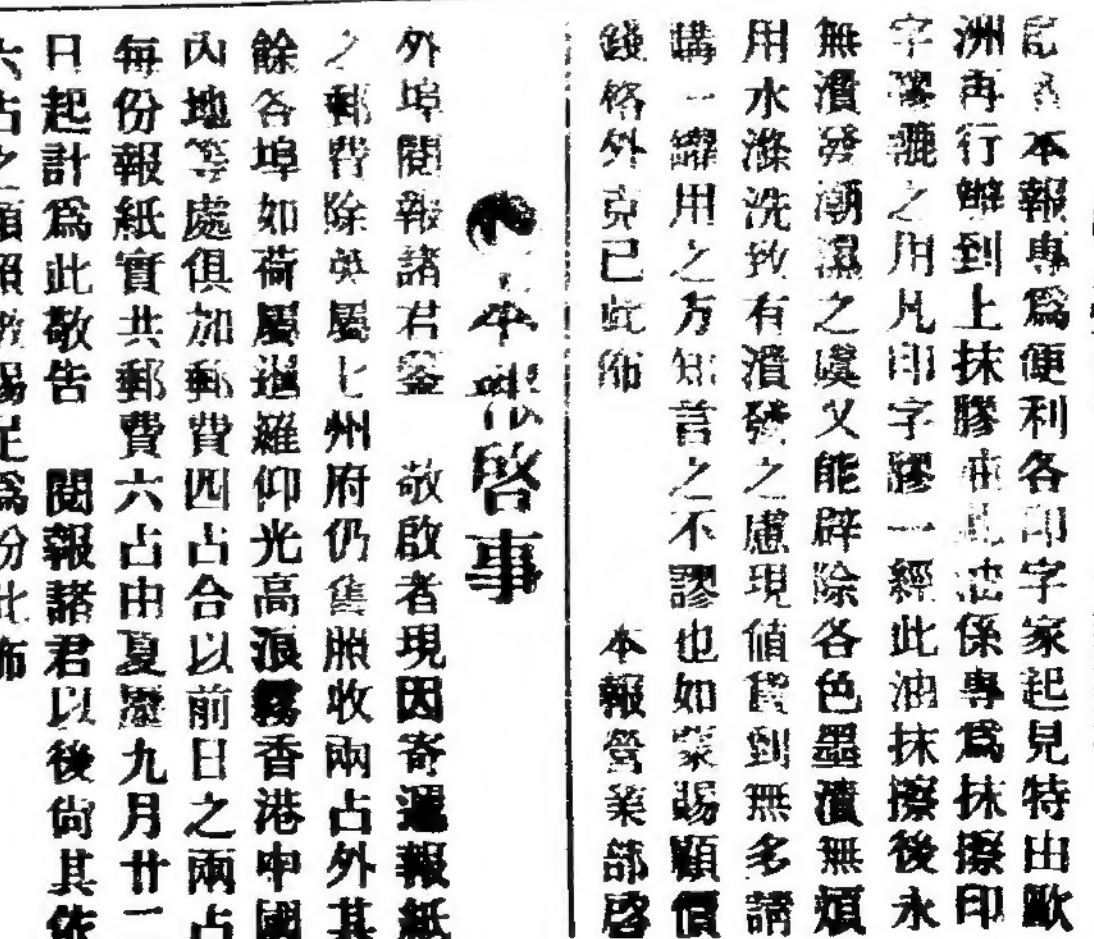 本報專爲便利各印字家起見特由歐
洲再行辦到上抹膠油此油係專爲抹擦印
字膠轆之用凡印字膠一經此油抹擦後永
無潰發潮濕之虞又能辟除各色墨漬無煩
用水滌洗致有潰發之慮現值貨到無多請
購一罐用之方知言之不謬也如蒙賜顧價
錢格外克己此佈 本報營業部啓
本報啓事
外埠閱報諸君鑒 敬啟者現因寄遞報紙
之郵費除英屬七州府仍舊照收兩占外其
餘各埠如荷屬暹羅仰光高浪霧香港中國
內地等處俱加郵費四占合以前日之兩占
每份報紙實共郵費六占由夏曆九月廿一
日起計爲此敬告 閱報諸君以後尙其依
六占之額照數賜足爲份此佈